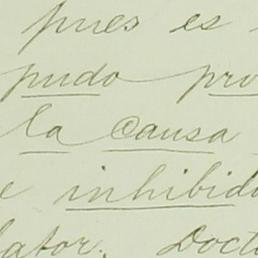 pues es
pudo pro
la causa
e inhibid
lator. Doct